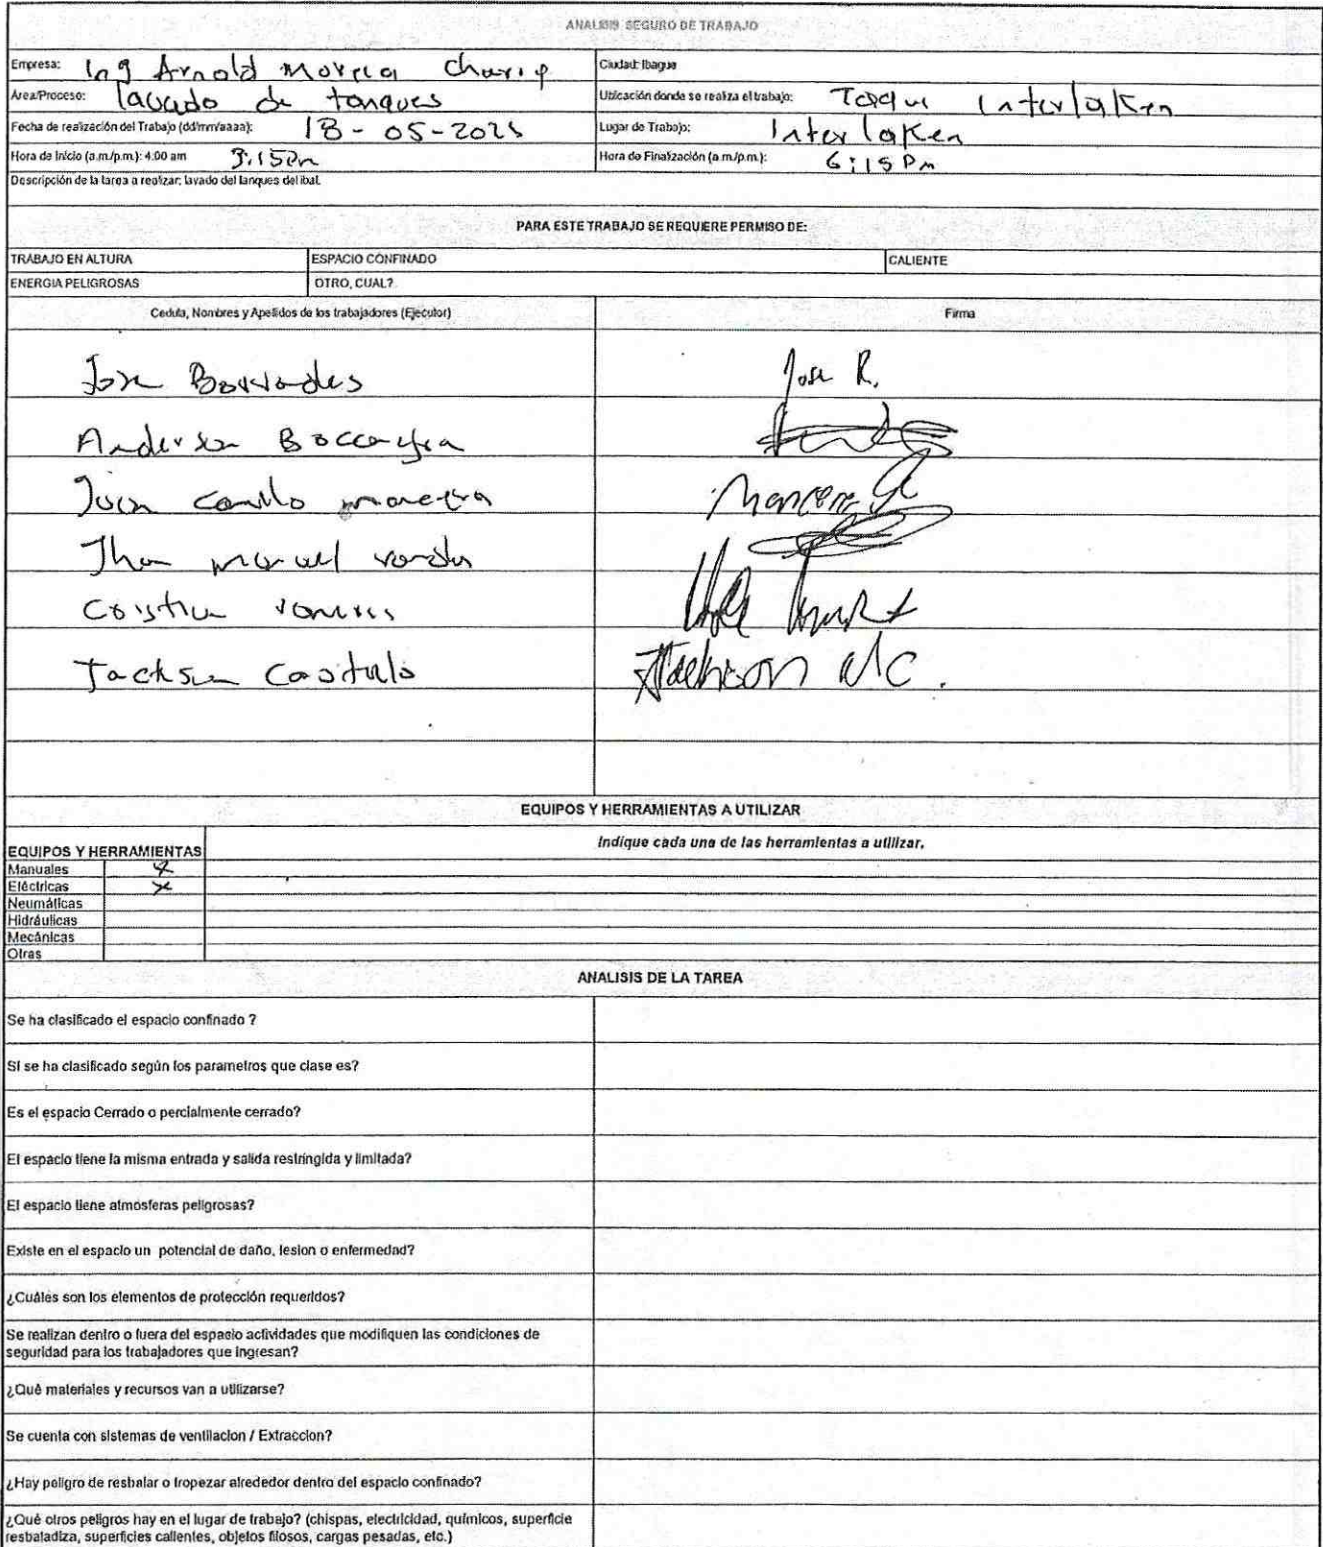 ANALISIS SEGURO DE TRABAJO
Empresa: Ing Arnold
Ciudad: Ibague
Área/Proceso: lavado de tanques
Ubicación donde se realiza el trabajo: Interlaken
Fecha de realización del Trabajo (dd/mm/aaaa): 18-05-2025
Lugar de Trabajo: Interlaken
Hora de Inicio (a.m./p.m.): 4:00 am 3:15Pm
Hora de Finalización (a.m./p.m.): 6:15 Pm
Descripción de la tarea a realizar: lavado del tanques del ibal.
PARA ESTE TRABAJO SE REQUIERE PERMISO DE:
TRABAJO EN ALTURA ESPACIO CONFINADO CALIENTE
ENERGIA PELIGROSAS OTRO, CUAL?
Cedula, Nombres y Apellidos de los trabajadores (Ejecutor) Firma
Jose Jose R.
Anderson
Juan Camilo
manuel
Jackson Castillo
EQUIPOS Y HERRAMIENTAS A UTILIZAR
EQUIPOS Y HERRAMIENTAS Indique cada una de las herramientas a utilizar.
Manuales X
Eléctricas X
Neumáticas
Hidráulicas
Mecánicas
Otras
ANALISIS DE LA TAREA
Se ha clasificado el espacio confinado ?
Si se ha clasificado según los parametros que clase es?
Es el espacio Cerrado o percialmente cerrado?
El espacio tiene la misma entrada y salida restringida y limitada?
El espacio tiene atmosferas peligrosas?
Existe en el espacio un potencial de daño, lesion o enfermedad?
¿Cuáles son los elementos de protección requeridos?
Se realizan dentro o fuera del espacio actividades que modifiquen las condiciones de
seguridad para los trabajadores que ingresan?
¿Qué materiales y recursos van a utilizarse?
Se cuenta con sistemas de ventilacion / Extraccion?
¿Hay peligro de resbalar o tropezar alrededor dentro del espacio confinado?
¿Qué otros peligros hay en el lugar de trabajo? (chispas, electricidad, químicos, superficie
resbaladiza, superficies calientes, objetos filosos, cargas pesadas, etc.)